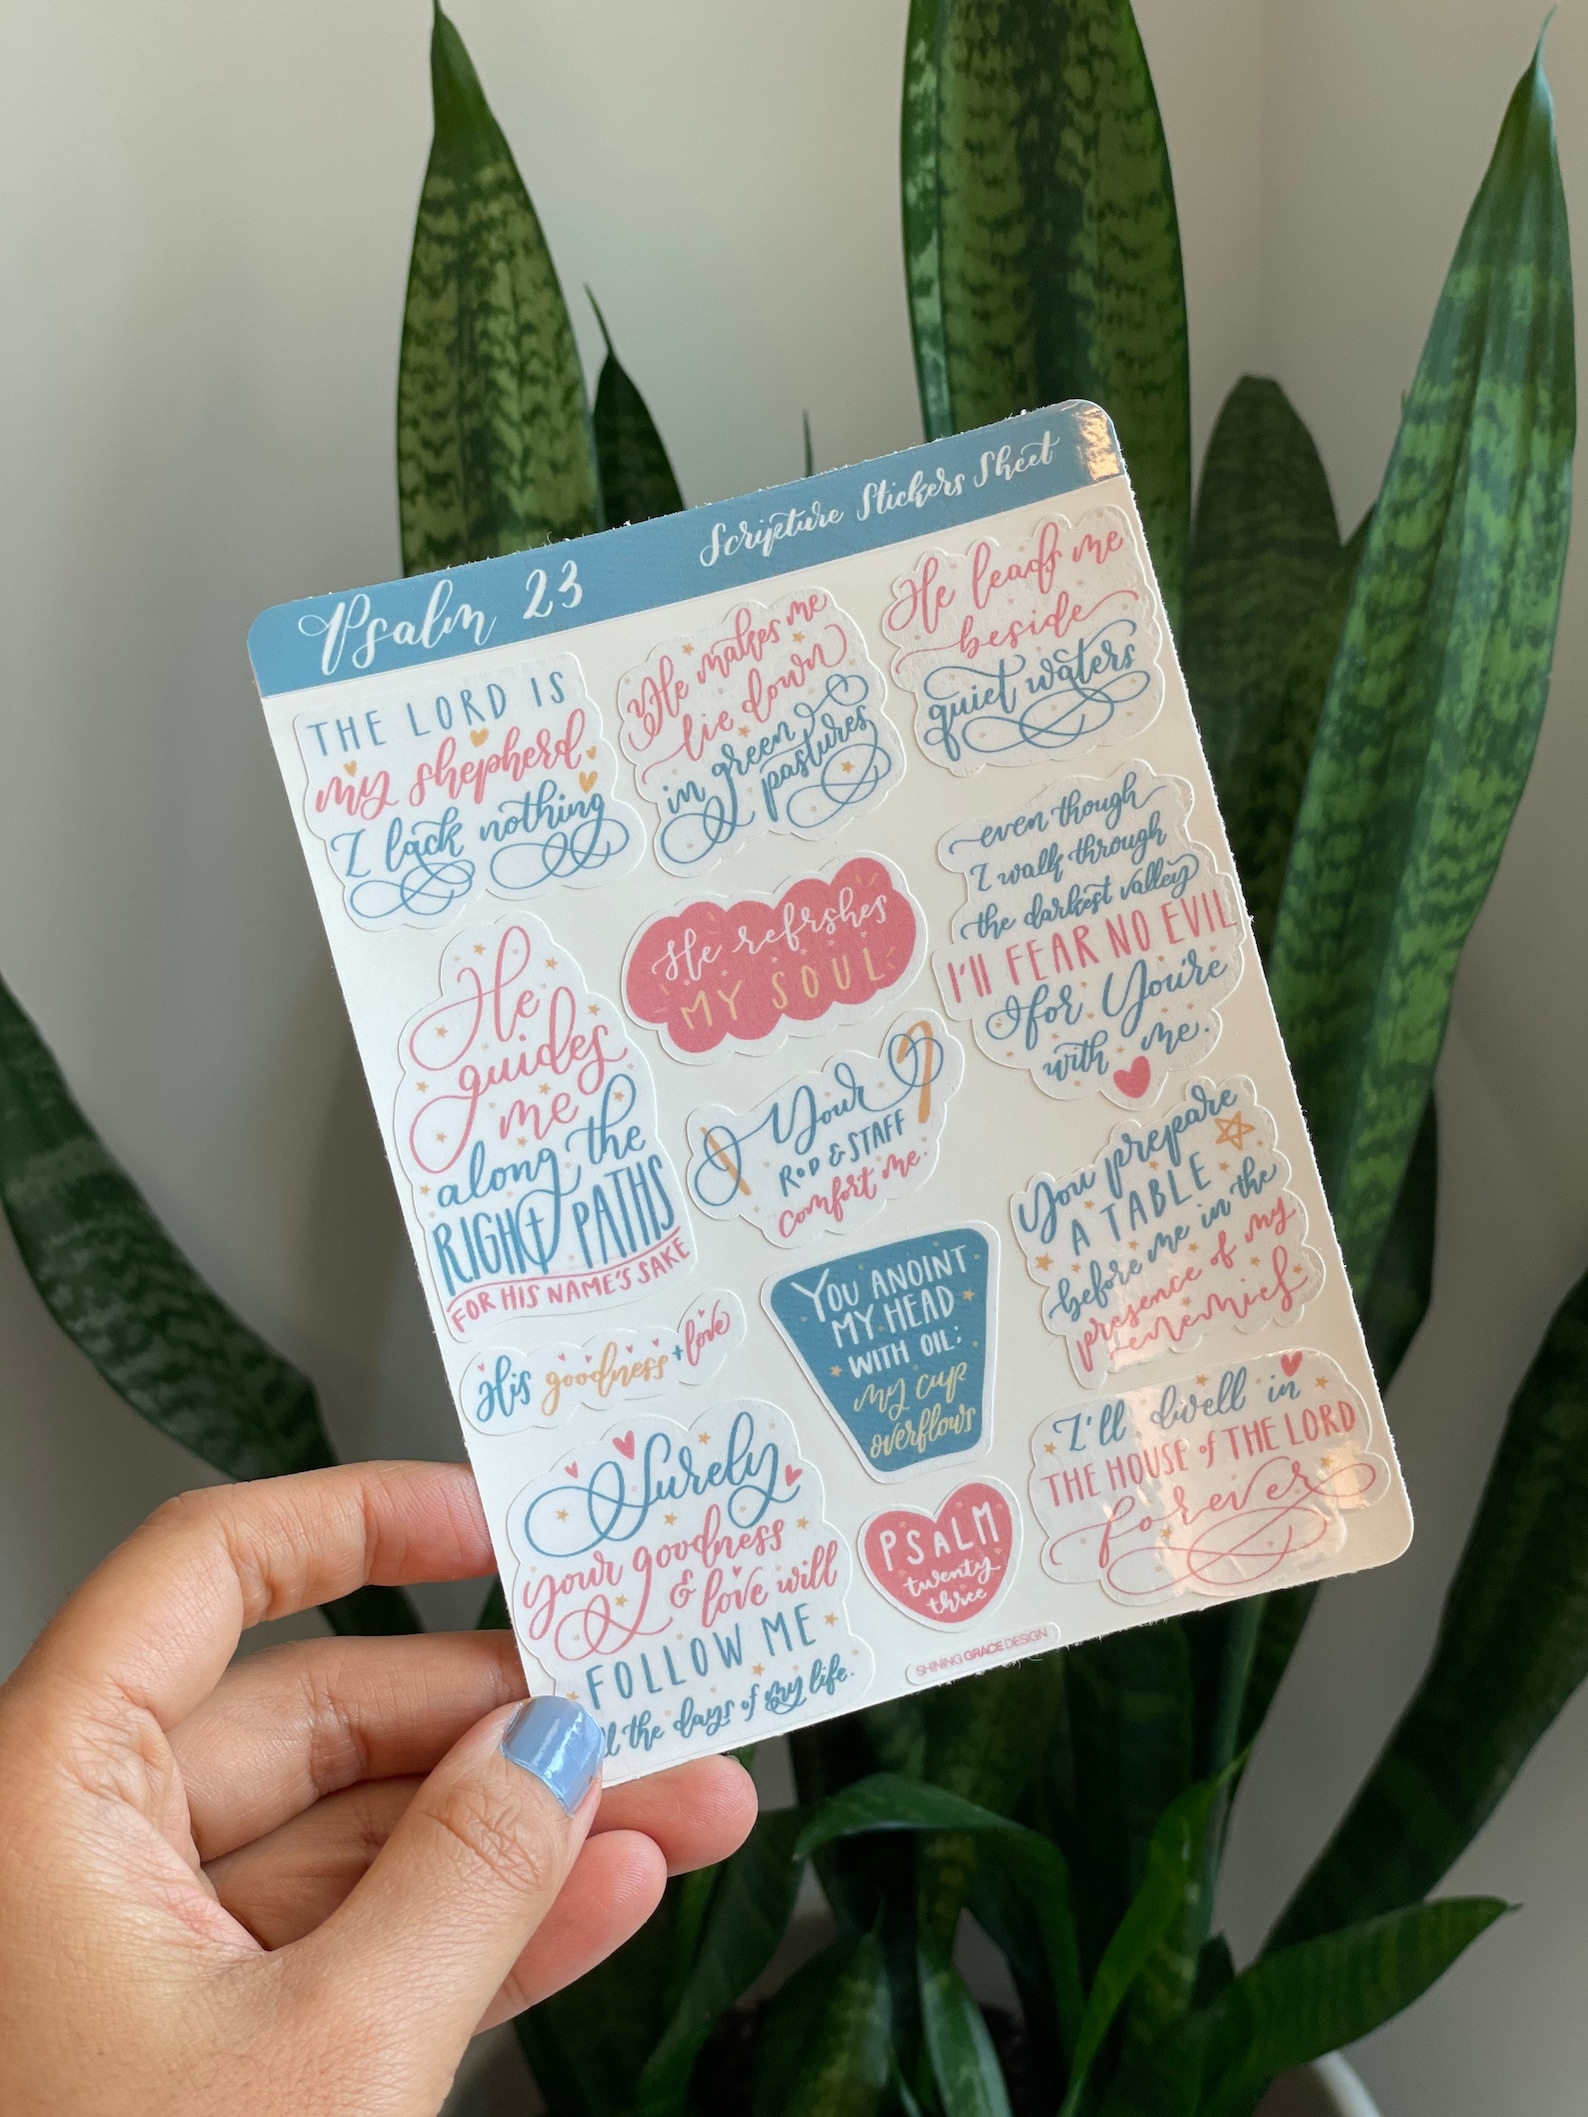 Psalm 23
Scripture Stickers Sheet
THE LORD IS
my shepherd
I lack nothing
He makes me
lie down
in green
pastures
He leads me
beside
quiet waters
He refrshes
MY SOUL
even though
I walk through
the darkest valley
I'll FEAR NO EVIL
for You're
with me.
He
guides
me
along the
RIGHT PATHS
FOR HIS NAME'S SAKE
Your
ROD & STAFF
comfort me.
You prepare
A TABLE
before me in the
presence of my
enemies
His goodness + love
YOU ANOINT
MY HEAD
WITH OIL;
my cup
overflows
I'll dwell in
THE HOUSE of THE LORD
forever
Surely
your goodness
& love will
FOLLOW ME
the days of my life.
PSALM
twenty
three
SHINING GRACE DESIGN